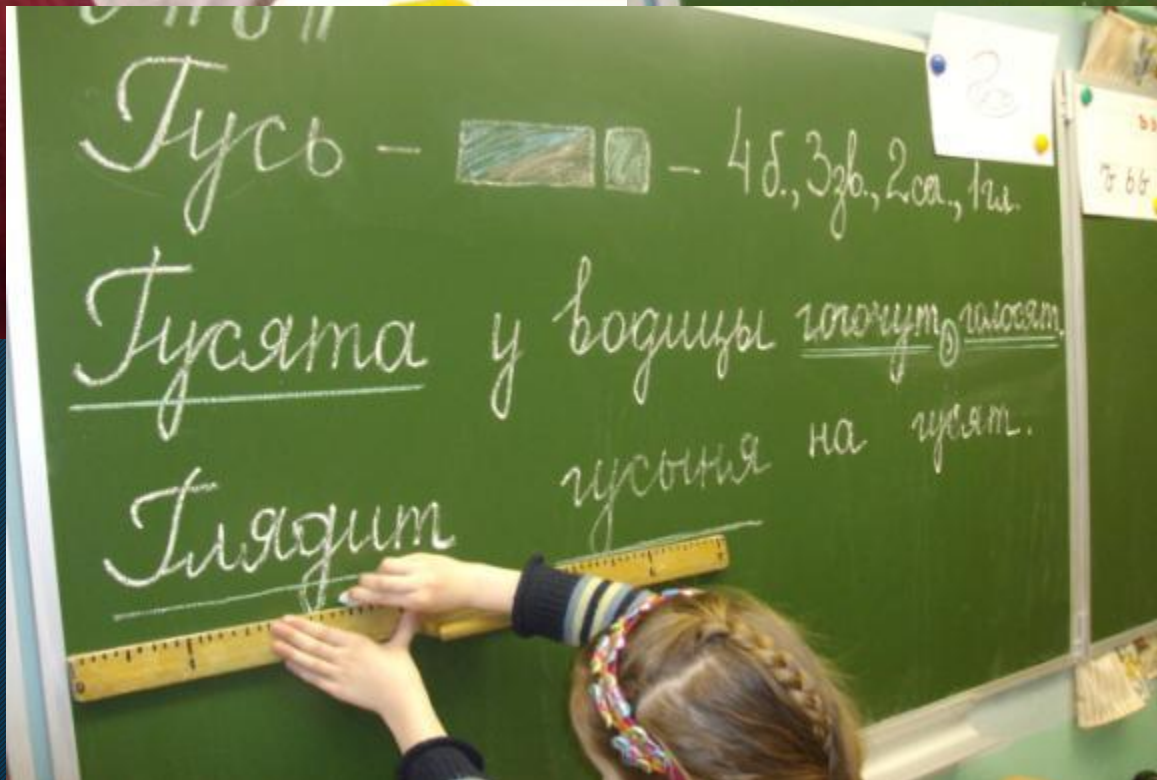 Гусь – – 4 б., 3 зв., 2 сог., 1 гл.
Гусята у водицы гогочут, голосят.
Глядит гусыня на гусят.
ъ ьь